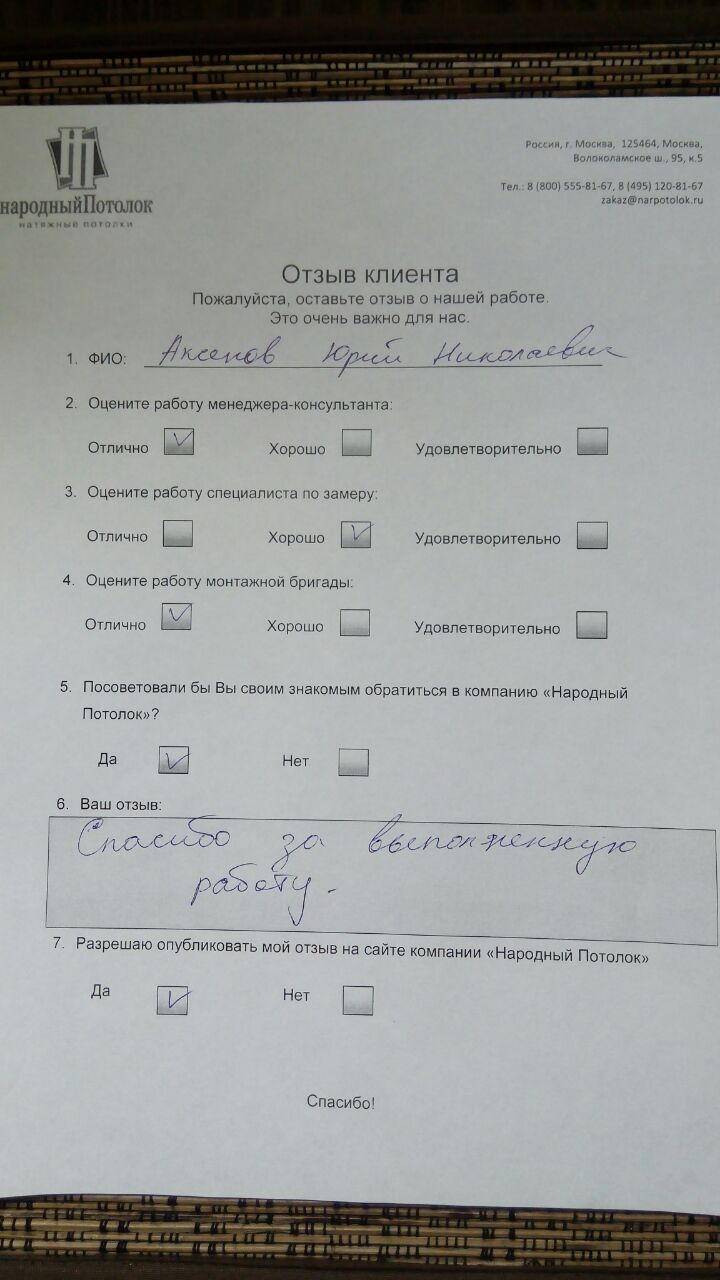 народныйПотолок
натяжные потолки
Россия, г. Москва, 125464, Москва,
Волоколамское ш., 95, к.5
Тел.: 8 (800) 555-81-67, 8 (495) 120-81-67
zakaz@narpotolok.ru
Отзыв клиента
Пожалуйста, оставьте отзыв о нашей работе.
Это очень важно для нас.
1. ФИО: Аксенов Юрий Николаевич
2. Оцените работу менеджера-консультанта:
Отлично Хорошо Удовлетворительно
3. Оцените работу специалиста по замеру:
Отлично Хорошо Удовлетворительно
4. Оцените работу монтажной бригады:
Отлично Хорошо Удовлетворительно
5. Посоветовали бы Вы своим знакомым обратиться в компанию «Народный
Потолок»?
Да Нет
6. Ваш отзыв:
Спасибо за выполненную
работу.
7. Разрешаю опубликовать мой отзыв на сайте компании «Народный Потолок»
Да Нет
Спасибо!